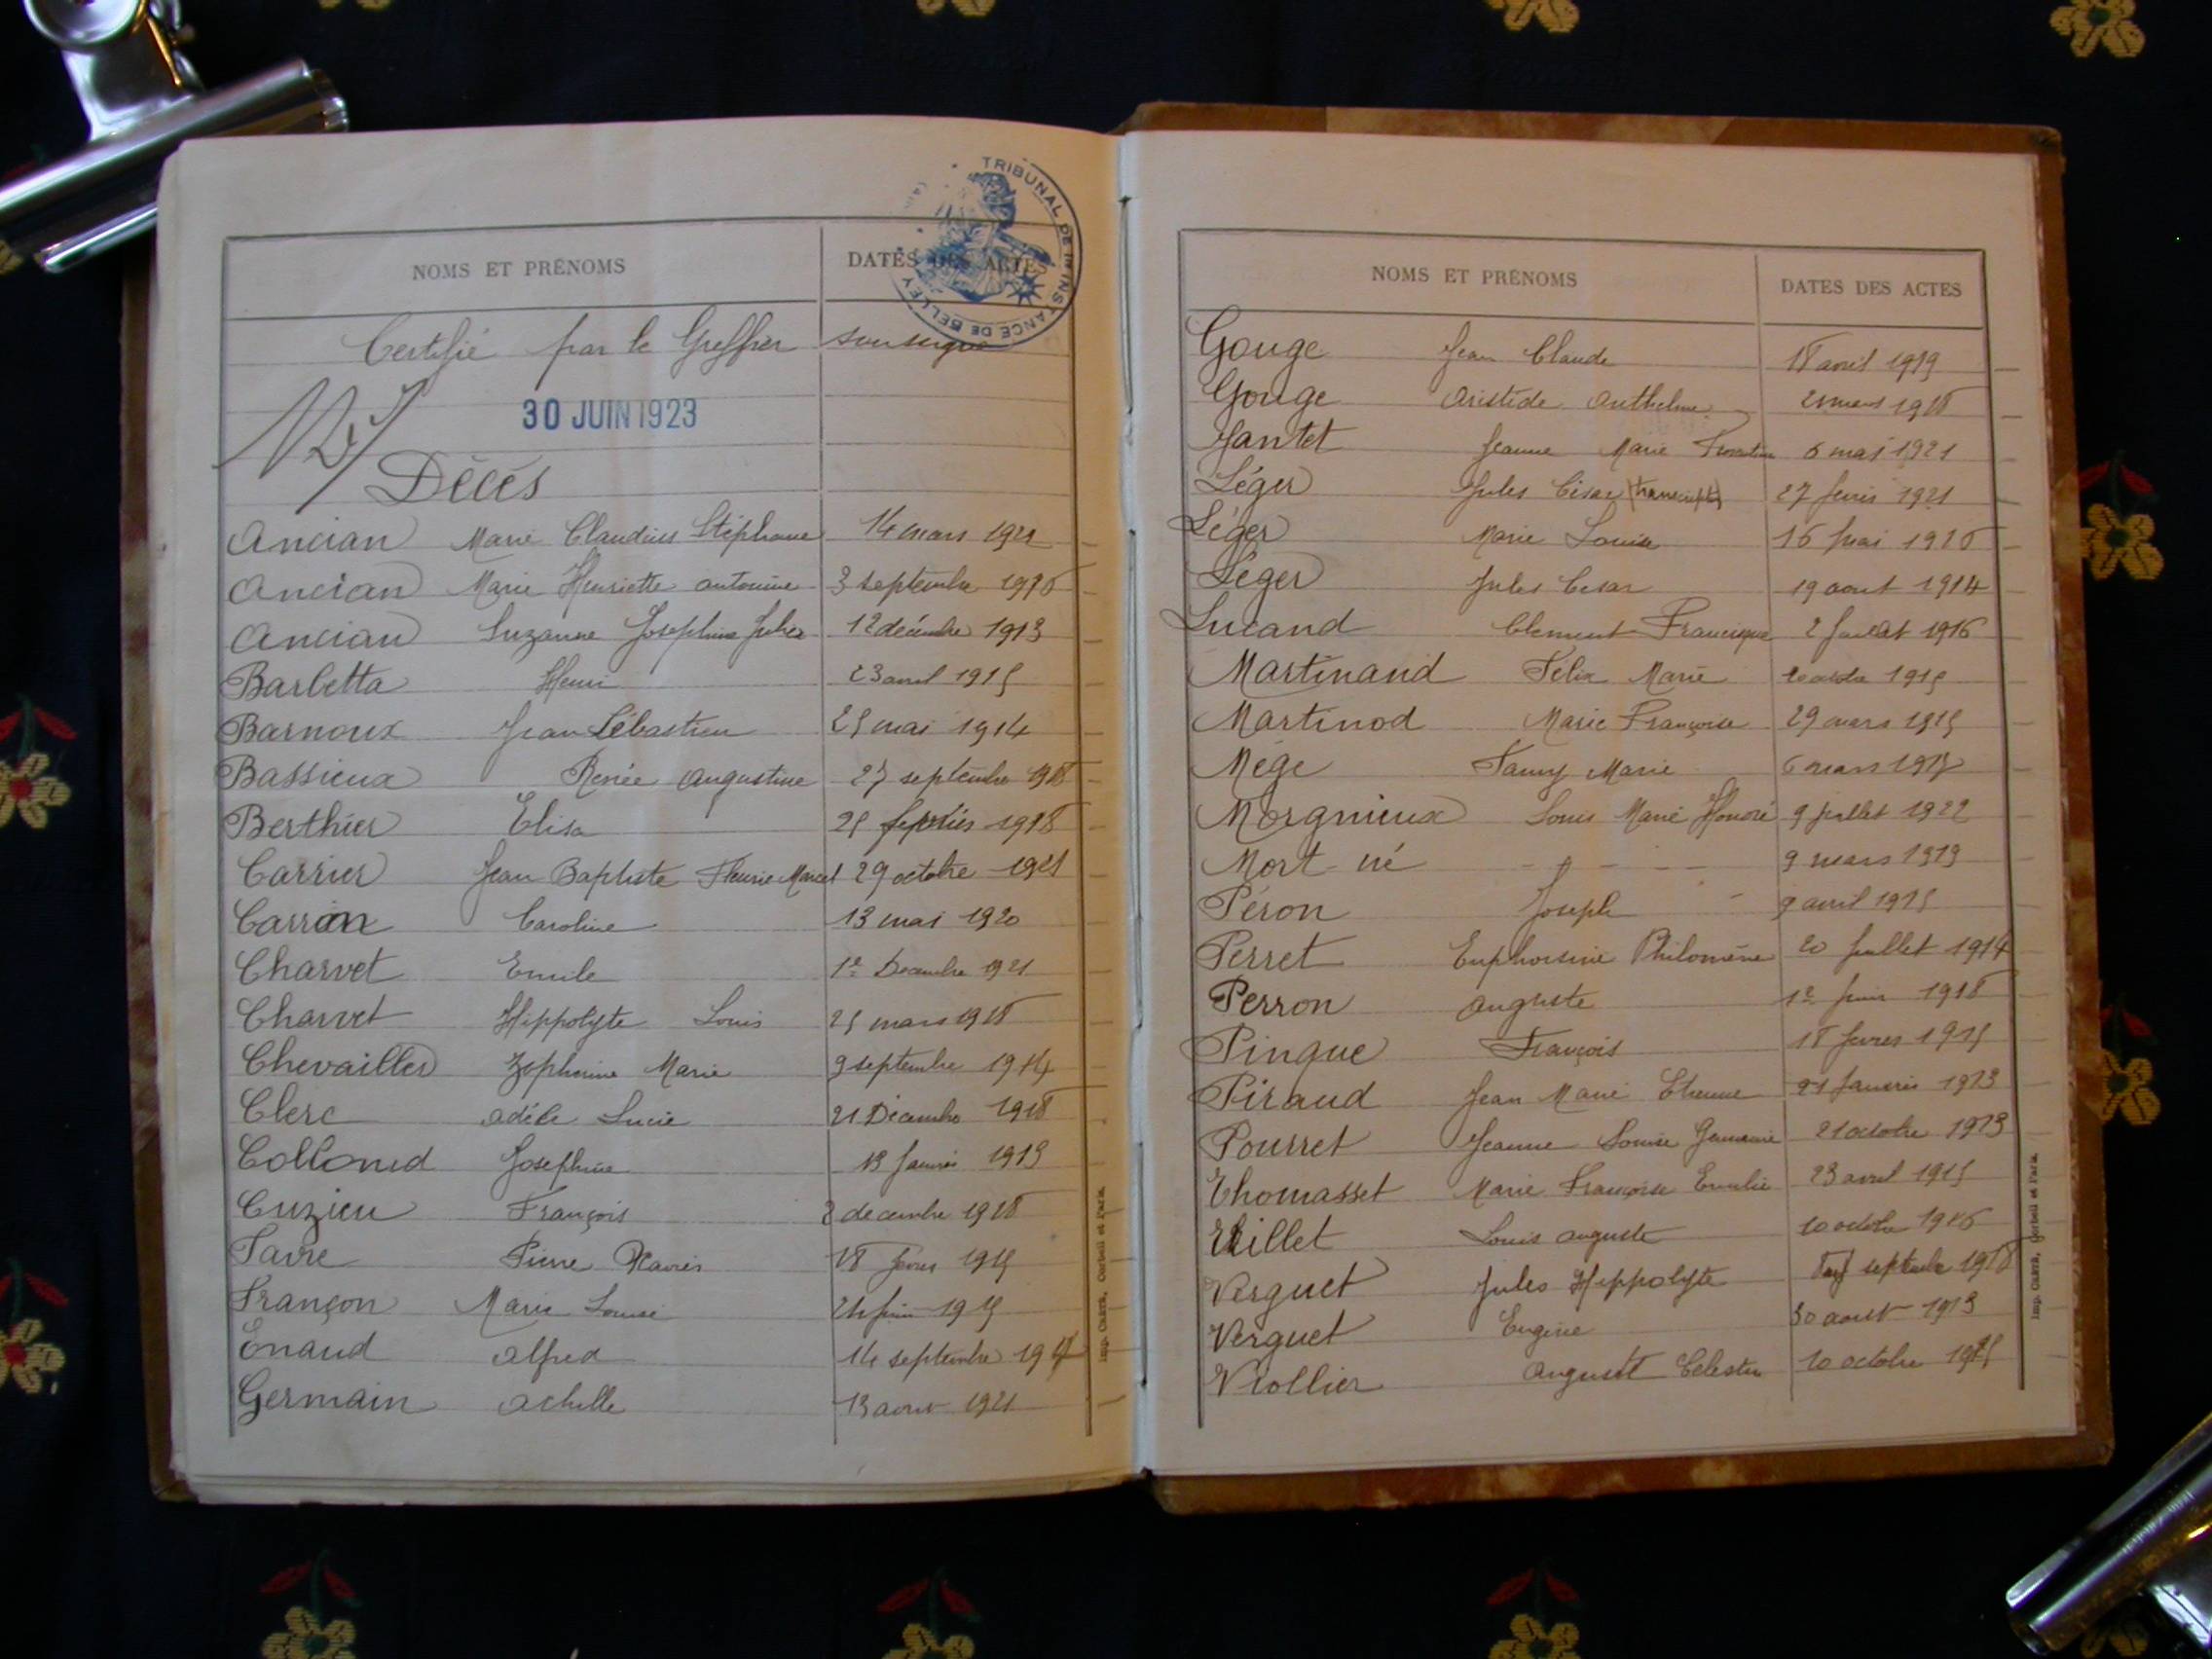 TRIBUNAL DE 1re INSTANCE DE BELLEY
NOMS ET PRÉNOMS DATES DES ACTES
Certifié par le Greffier soussigné
30 JUIN 1923
Décès
Ancian Marie Claudius Stéphane 14 mars 1921
Ancian Marie Henriette antonine 3 septembre 1916
Ancian Suzanne Josephine 12 décembre 1913
Barbetta Henri 23 avril 1915
Barnoux Jean Sébastien 25 mai 1914
Bassieux Renée Augustine 27 septembre 1918
Berthier Elisa 25 1918
Carrier Jean Baptiste Fleurie Marcel 29 octobre 1921
Carron Caroline 13 mai 1920
Charvet Emile 1er Decembre 1921
Charvet Hippolyte Louis 25 mars 1918
Chevailler Zepherine Marie 9 septembre 1914
Clerc adèle Lucie 21 Décembre 1918
Collomd Josephine 19
Cuzieu François 2 decembre 1918
Favre Pierre Xavier 18
Françon Marie Louise 24 juin
Enaud alfred 14 septembre
Germain achille 13 1921
Imp. Carté, Corbeil et Paris.
NOMS ET PRÉNOMS DATES DES ACTES
Gouge Jean Claude 18 avril 1919
Gouge Aristide Anthelme 1918
Jantet Jeanne Marie 6 mai 1921
Léger Jules César 27 1921
Léger Marie Louise 16
Léger Jules Cesar 19 aout 1914
Lucand Clement Francisque 2 1916
Martinand Félix Marie 1915
Martinod Marie Françoise 29 mars 1915
Mége Fanny Marie 6 mars
Morgnieux Louis Marie Honoré 9 juillet 1922
Mort-né 9 mars 1919
Péron Joseph 9 avril 1915
Perret Euphorsine Philomène 20 juillet 1914
Perron auguste 1er juin 1918
Pingue François 18 1915
Piraud Jean Marie Etienne 21
Pourret Jeanne Louise 21 octobre
Thomasset Marie Françoise Emilie 23 avril 1915
Louis auguste 10 octobre 1916
Verguet Jules Hippolyte septembre 1918
Verguet Eugène 30 aout 1913
Viollier August Celestin 10 octobre
Imp. Carté, Corbeil et Paris.